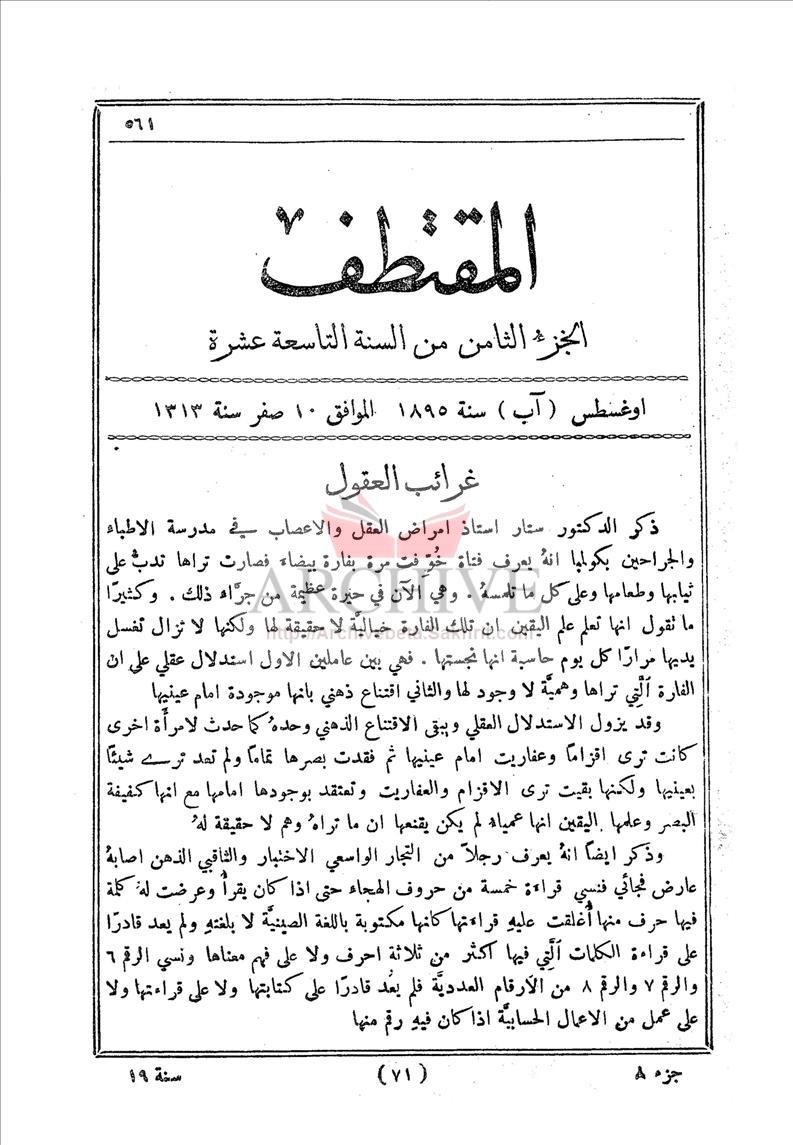 ٥٦١
المقتطف
الجزء الثامن من السنة التاسعة عشرة
اوغسطس ( آب ) سنة ١٨٩٥ الموافق ١٠ صفر سنة ١٣١٣
غرائب العقول
ذكر الدكتور ستار استاذ امراض العقل والاعصاب في مدرسة الاطباء
والجراحين بكولمبيا انهُ يعرف فتاة خُوِّفت مرة بفارة بيضاء فصارت تراها تدبُّ على
ثيابها وطعامها وعلى كل ما تلمسهُ . وهي الآن في حيرة عظيمة من جرَّاء ذلك . وكثيرًا
ما نقول انها تعلم علم اليقين ان تلك الفارة خياليَّة لا حقيقة لها ولكنها لا تزال تغسل
يديها مرارًا كل يوم حاسبة انها نجستها . فهي بين عاملين الاول استدلال عقلي على ان
الفارة الَّتي تراها وهميَّة لا وجود لها والثاني اقتناع ذهني بانها موجودة امام عينيها
وقد يزول الاستدلال العقلي ويبقى الاقتناع الذهني وحدهُ كما حدث لامرأَة اخرى
كانت ترى اقزامًا وعفاريت امام عينيها ثم فقدت بصرها تمامًا ولم تعد ترى شيئًا
بعينيها ولكنها بقيت ترى الاقزام والعفاريت وتعتقد بوجودها امامها مع انها كفيفة
البصر وعلمها اليقين انها عمياء لم يكن يقنعها ان ما تراهُ وهم لا حقيقة لهُ
وذكر ايضًا انهُ يعرف رجلاً من التجار الواسعي الاختبار والثاقبي الذهن اصابهُ
عارض فجائي فنسي قراءة خمسة من حروف الهجاء حتى اذا كان يقرأُ وعرضت لهُ كلمة
فيها حرف منها أُغلقت عليهِ قراءتها كانها مكتوبة باللغة الصينيَّة لا بلغتهِ ولم يعد قادرًا
على قراءة الكلمات الَّتي فيها اكثر من ثلاثة احرف ولا على فهم معناها ونسي الرقم ٦
والرقم ٧ والرقم ٨ من الأرقام العدديَّة فلم يعُد قادرًا على كتابتها ولا على قراءتها ولا
على عمل من الاعمال الحسابيَّة اذا كان فيهِ رقم منها
جزء ٨ (٧١) سنة ١٩
ARCHIVE
http://Archivebeta.Sakhrit.com